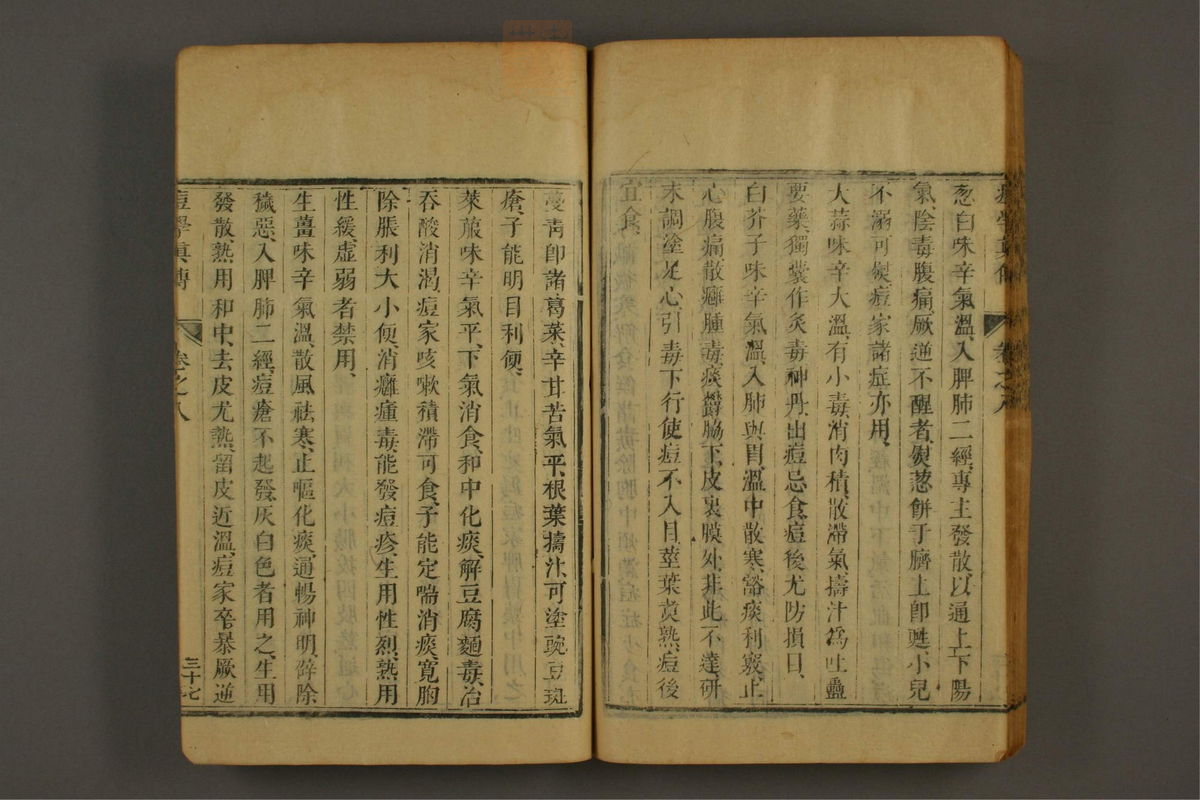 痘學真傳 卷之八
葱白味辛氣溫、入脾肺二經、專主發散、以通上下陽
氣、陰毒腹痛、厥逆不醒者、熨葱餅于臍上即甦、小兒
不溺可熨、痘家諸症亦用、
大蒜味辛大溫、有小毒、消肉積、散滯氣、擣汁為吐蠱
要藥、獨囊作灸毒神丹、出痘忌食、痘後尤防損目、
白芥子味辛氣溫、入肺與胃、溫中散寒、豁痰利竅、止
心腹痛、散癰腫毒、痰欝脇下、皮裏膜外、非此不達、研
末調塗足心、引毒下行、使痘不入目、莖葉煑熟、痘後
宜食、
蔓青即諸葛菜、辛甘苦氣平、根葉擣汁、可塗豌豆斑
瘡、子能明目利便、
萊菔味辛氣平、下氣消食、和中化痰、解豆腐麵毒、冶
吞酸消渴、痘家咳嗽積滯可食、子能定喘消痰、寬胸
除脹、利大小便、消癰瘇毒、能發痘疹、生用性烈、熟用
性緩、虛弱者禁用、
生薑味辛氣溫、散風祛寒、止嘔化痰、通暢神明、辟除
穢惡、入脾肺二經、痘瘡不起發、灰白色者用之、生用
發散、熟用和中、去皮尤熱、留皮近溫、痘家卒暴厥逆
痘學真傳 卷之八 三十七